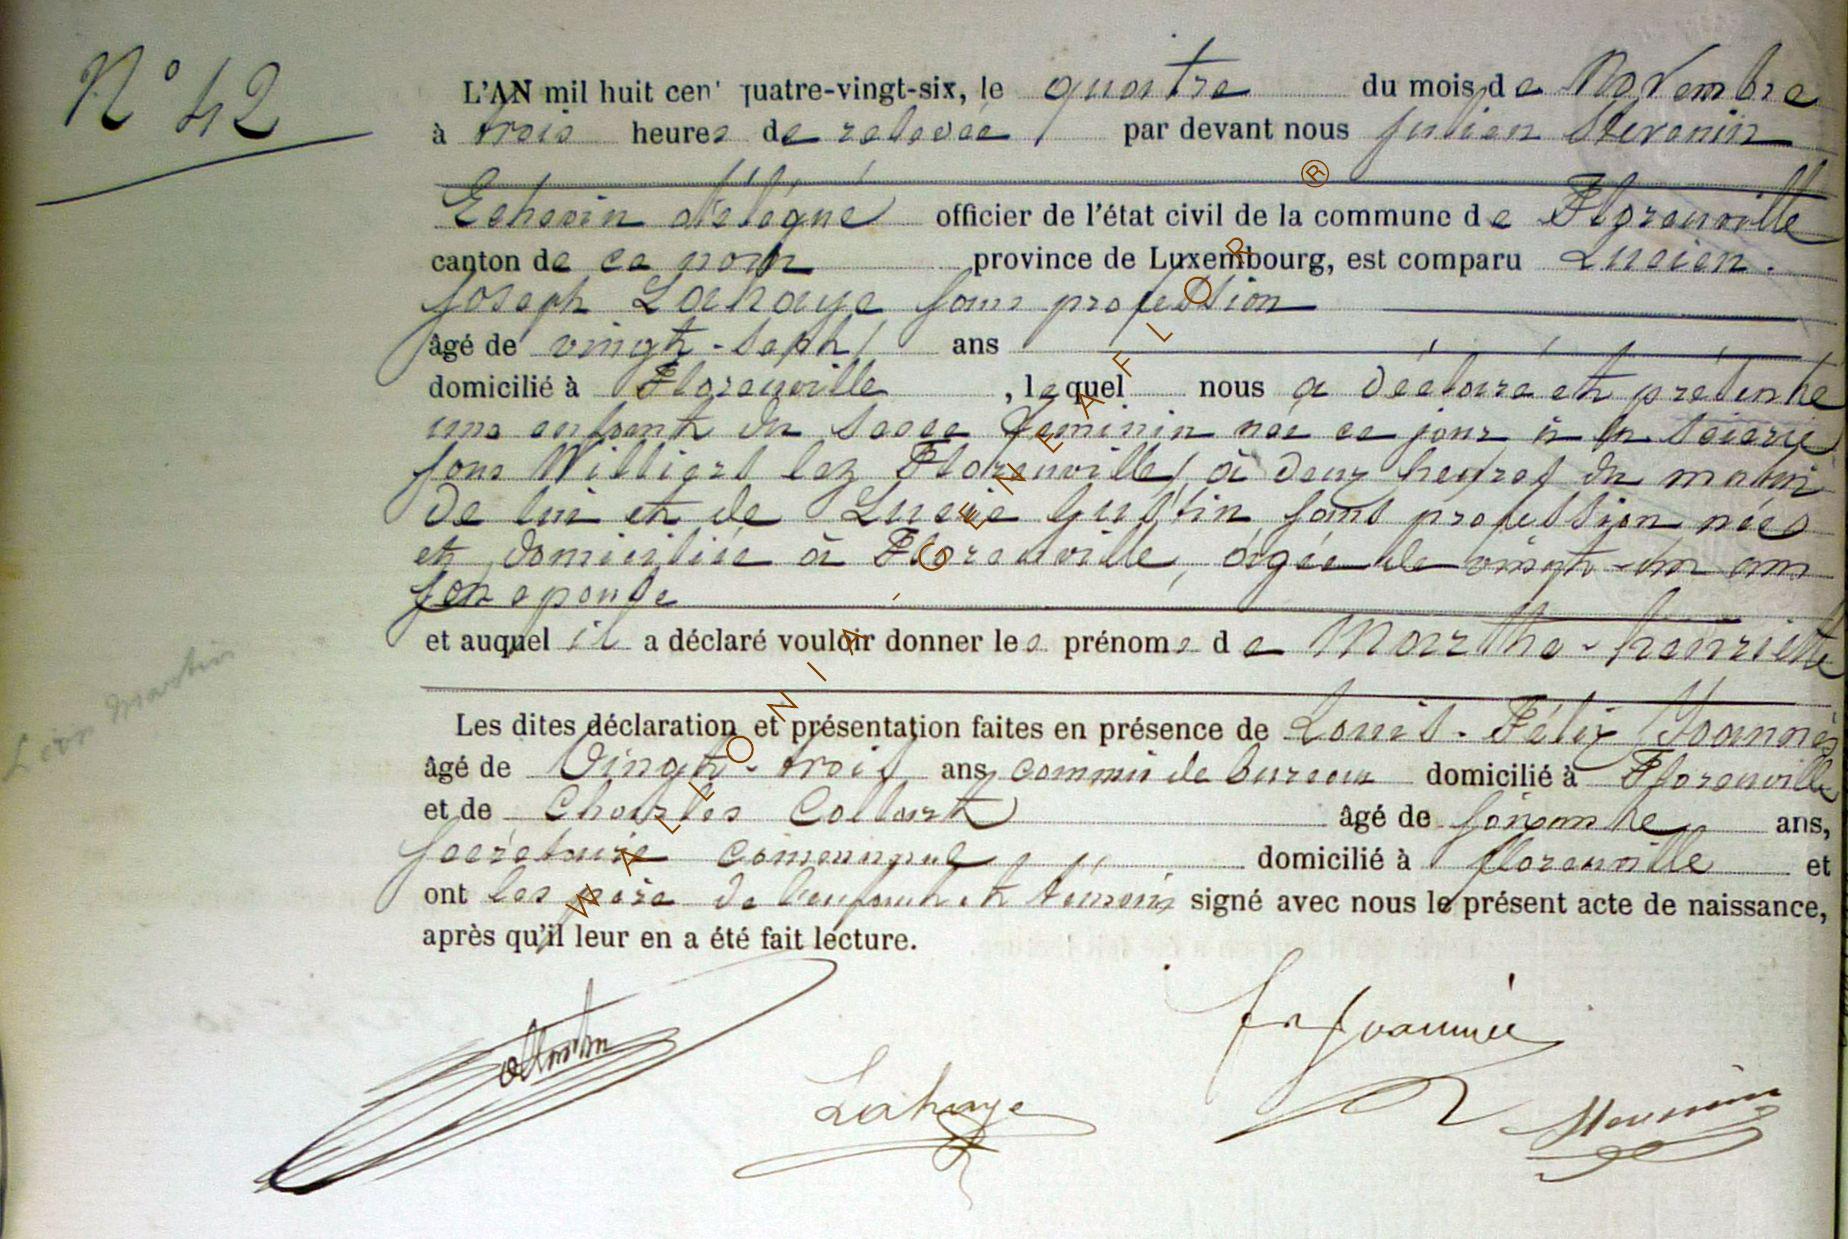 N° 42
L'AN mil huit cen' quatre-vingt-six, le quatre du mois de Novembre
à trois heures de relevée, par devant nous Julien
Echevin délégué officier de l'état civil de la commune de Florenville
canton de ce nom province de Luxembourg, est comparu Lucien-
Joseph Lahaye sans profession
âgé de vingt-sept ans
domicilié à Florenville, lequel nous a déclaré et présenté
une enfant du sexe féminin née ce jour à la scierie
sous Williers lez Florenville, à deux heures du matin
de lui et de Lucie Gustin sans profession née
et domiciliée à Florenville, âgée de vingt-un ans
son épouse
et auquel il a déclaré vouloir donner les prénoms de Marthe-henriette
Les dites déclaration et présentation faites en présence de Louis-Félix Joannès
âgé de Vingt-trois ans commis de bureau domicilié à Florenville
et de Charles Collart âgé de soixante ans,
secrétaire communal, domicilié à florenville et
ont les père de l'enfant et témoins signé avec nous le présent acte de naissance,
après qu'il leur en a été fait lecture.
Léon Martin
Lahaye
WALLONIA GENEAFLOR ®